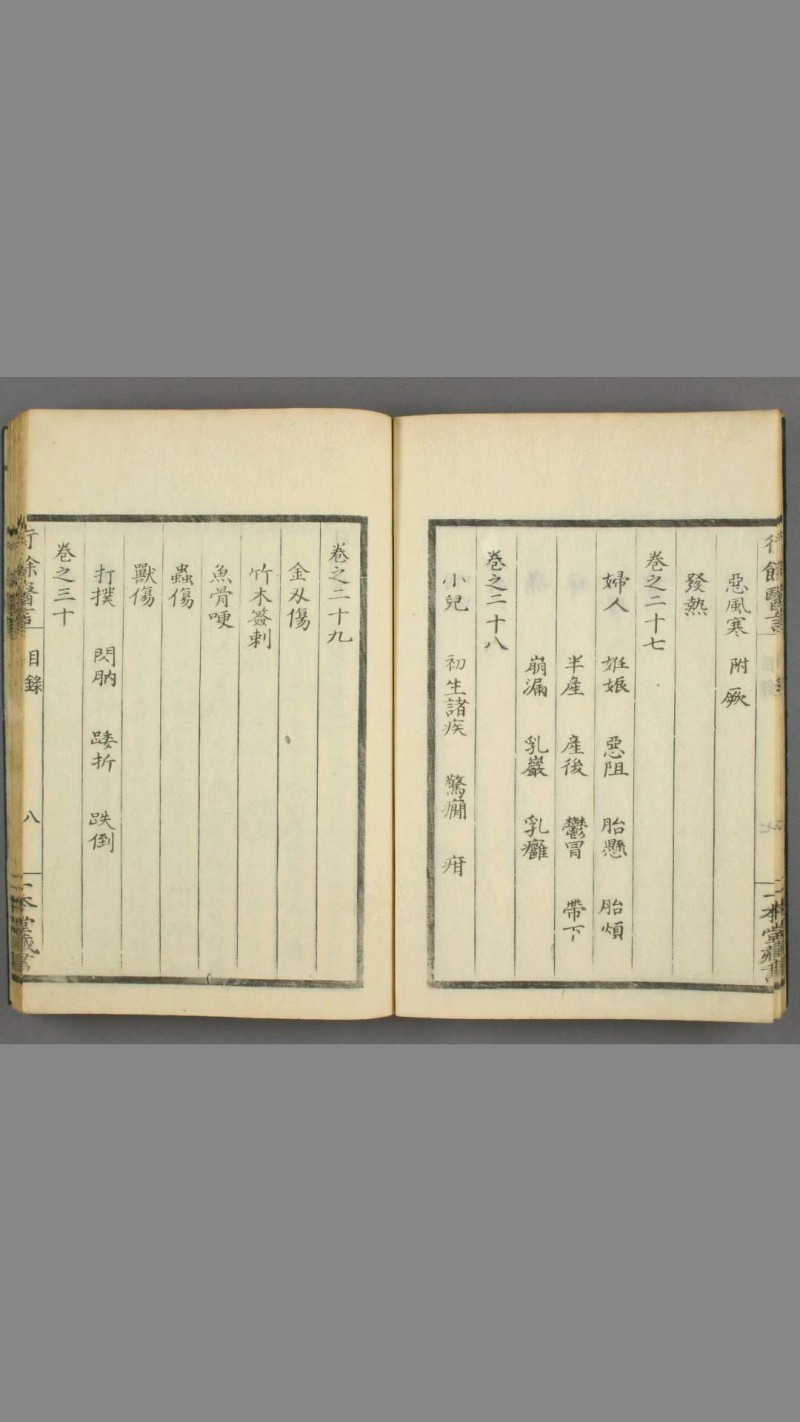 惡風寒 附 厥
發熱
卷之二十七
婦人 姙娠 惡阻 胎懸 胎煩
半産 産後 鬱冒 帶下
崩漏 乳巖 乳癰
卷之二十八
小兒 初生諸疾 驚癇 疳
卷之二十九
金刄傷
竹木簽刺
魚骨哽
蟲傷
獸傷
打撲 閃肭 踒折 跌倒
卷之三十
行餘醫言 目錄 八 一本堂藏書